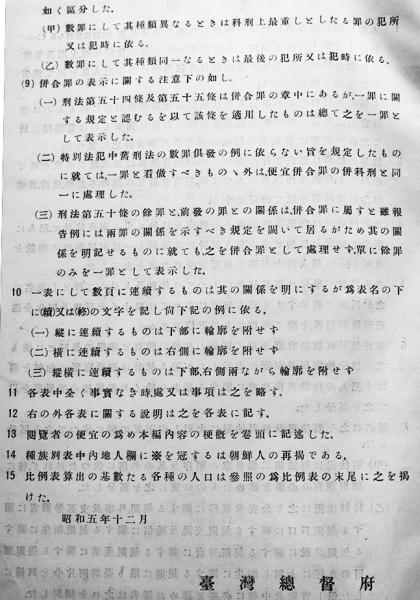 如く區分した。
(甲) 數罪にして其種類異なるときは科刑上最重しとしたる罪の犯所
又は犯時に依る。
(乙) 數罪にして其種類同一なるときは最後の犯所又は犯時に依る。
(9) 併合罪の表示に關する注意下の如し。
(一) 刑法第五十四條及第五十五條は併合罪の章中にあるが、一罪に關
する規定と認むるを以て該條を適用したものは總て之を一罪と
して表示した。
(二) 特別法犯中舊刑法の數罪俱發の例に依らない旨を規定したもの
に就ては、一罪と看做すべきものゝ外は、便宜併合罪の併科刑と同
一に處理した。
(三) 刑法第五十條の餘罪と、前發の罪との關係は、併合罪に屬すと雖報
告例には兩罪の關係を示すべき規定を闕いて居るがため其の關
係を明記せるものに就ても、之を併合罪として處理せず、單に餘罪
のみを一罪として表示した。
10 一表にして數頁に連續するものは其の關係を明にするが爲表名の下
に(續)又は(終)の文字を記し尙下記の例に依る。
(一) 縱に連續するものは下部に輪廓を附せず
(二) 橫に連續するものは右側に輪廓を附せず
(三) 縱橫に連續するものは下部、右側兩ながら輪廓を附せず
11 各表中全く事實なき時、處又は事項は之を略す。
12 右の外各表に關する說明は之を各表に記す。
13 閱覽者の便宜の爲め本編內容の梗槪を卷頭に記述した。
14 種族別表中內地人欄に※を冠するは朝鮮人の再揭である。
15 比例表算出の基數たる各種の人口は參照の爲比例表の末尾に之を揭
けた。
昭和五年十二月
臺灣總督府